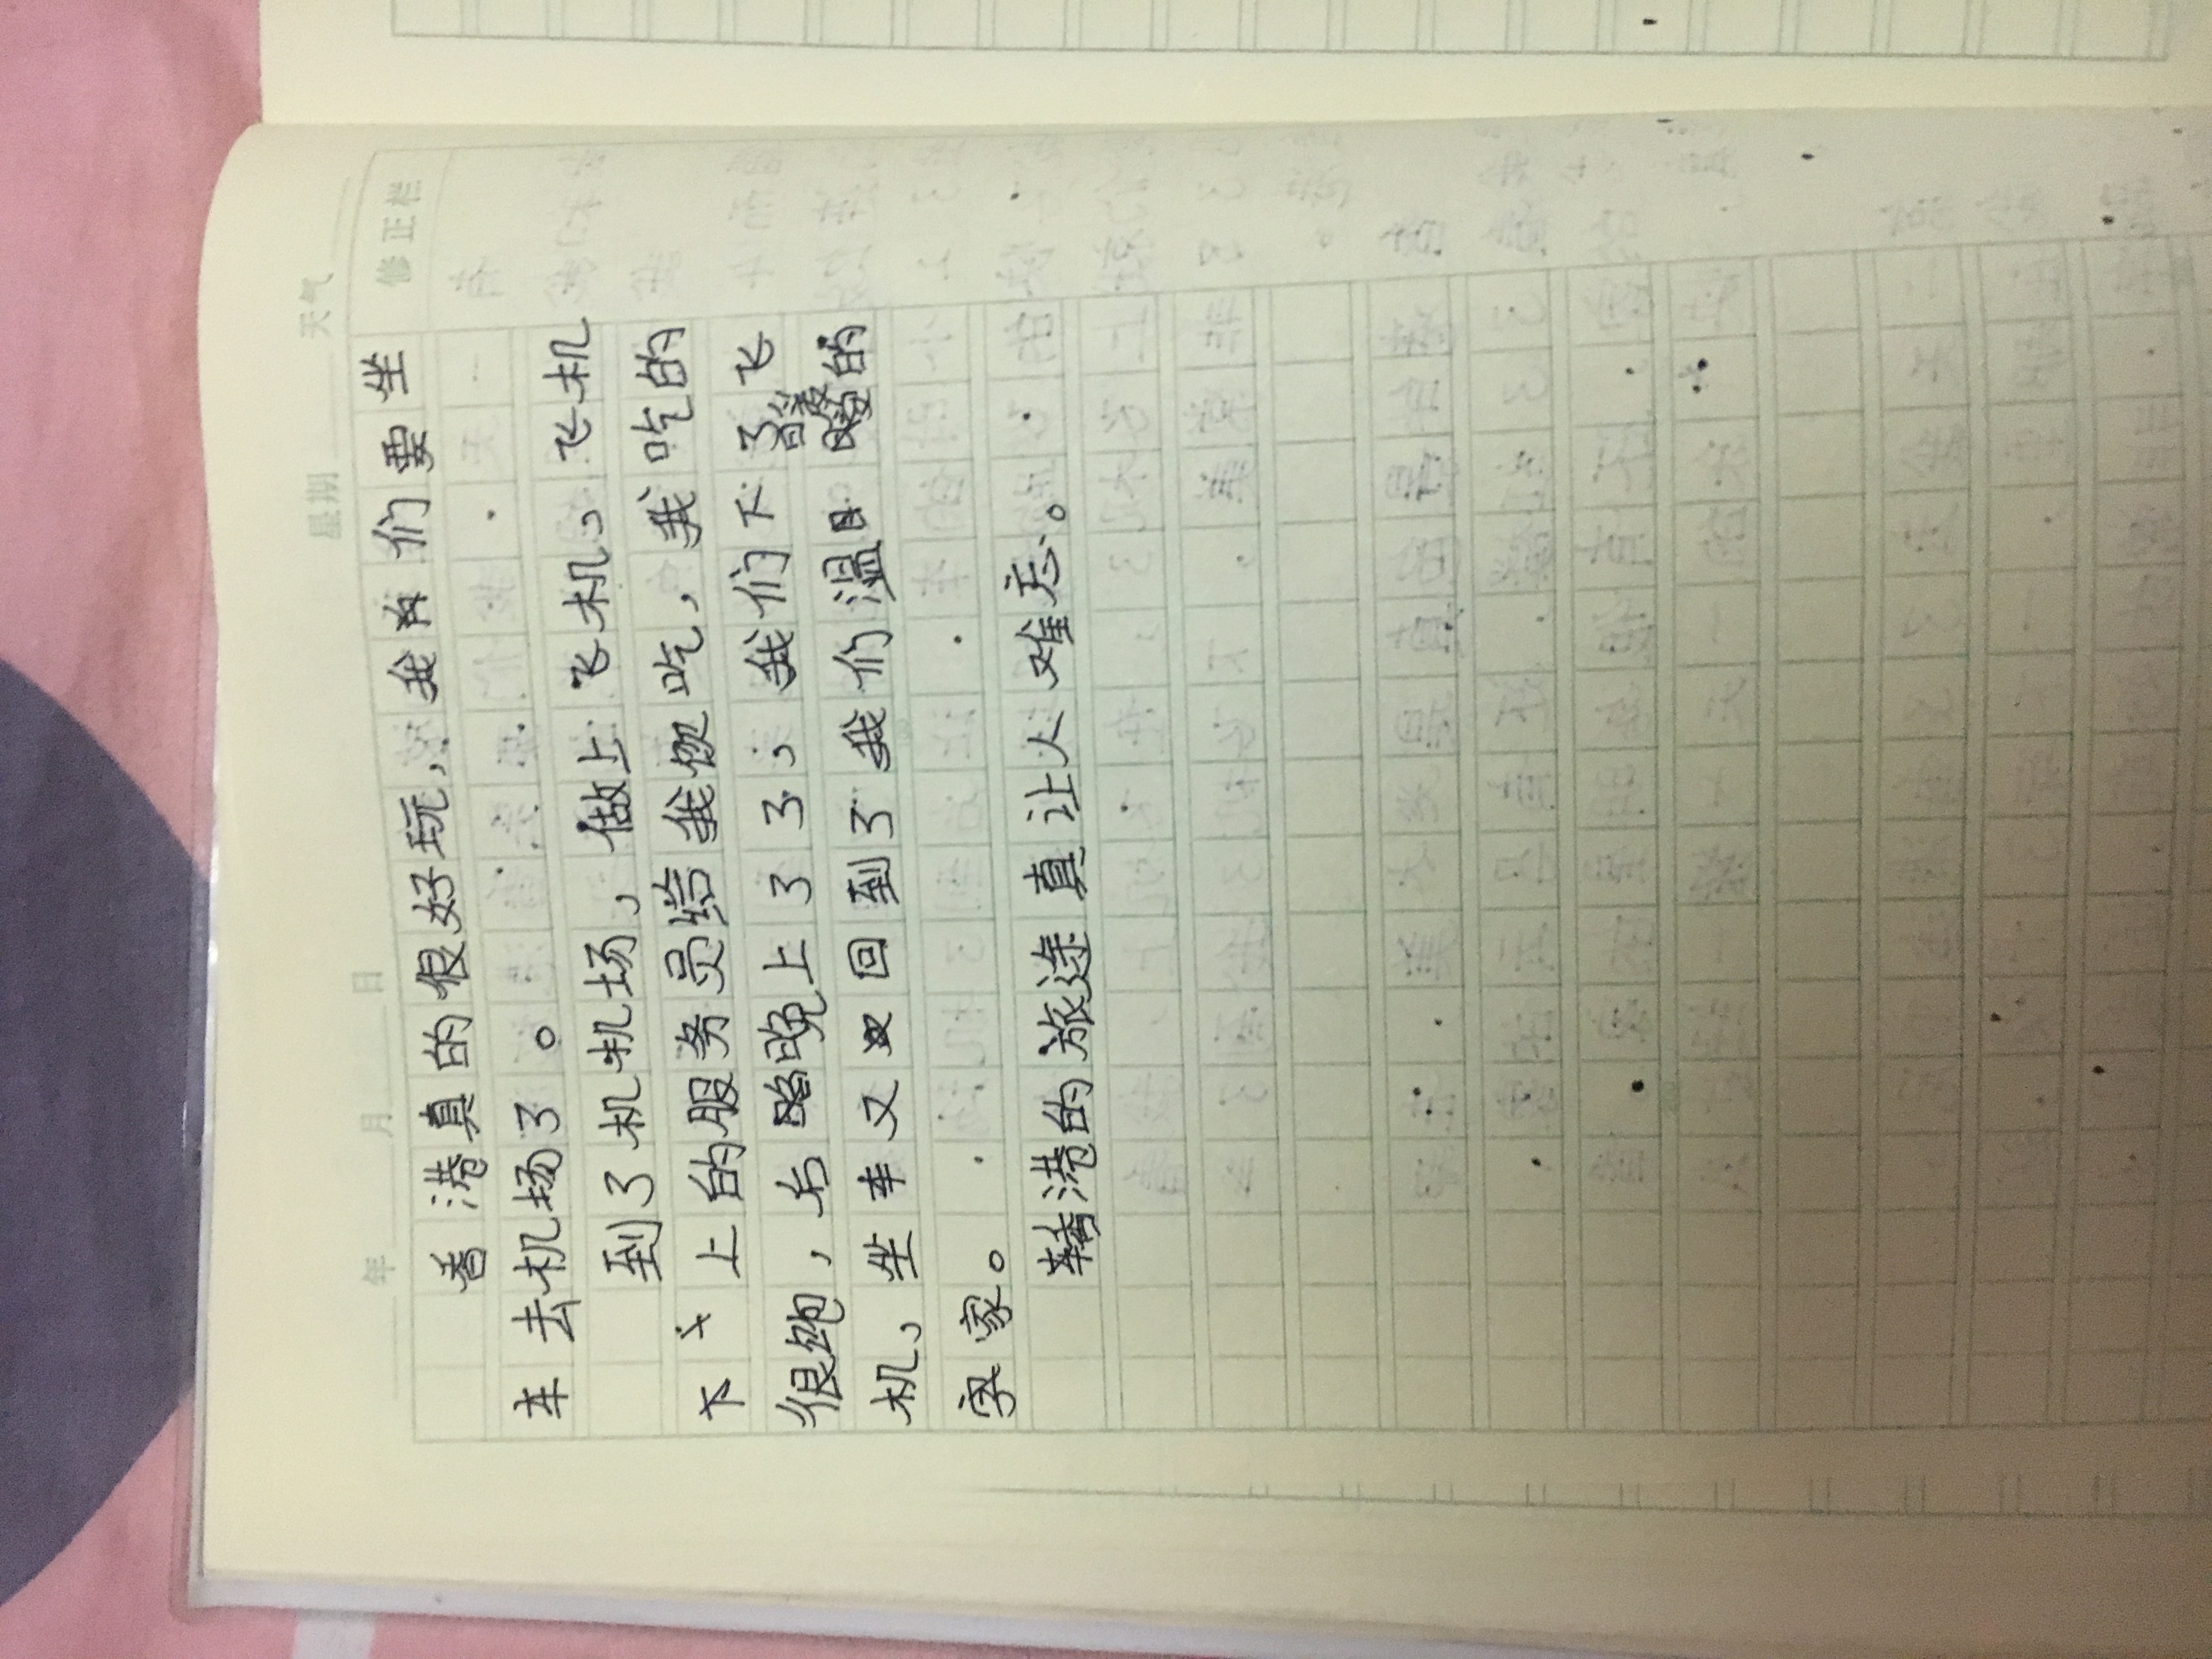 年 月 日 星期 天气
修正栏
香港真的很好玩，我们要坐
车去机场了。
到了机场，做上飞机，飞机
上的服务员给我饭吃，我吃的
很饱，到晚上了，我们下了飞
机，坐车又回到了我们温的
家。
香港的旅途真让人难忘。